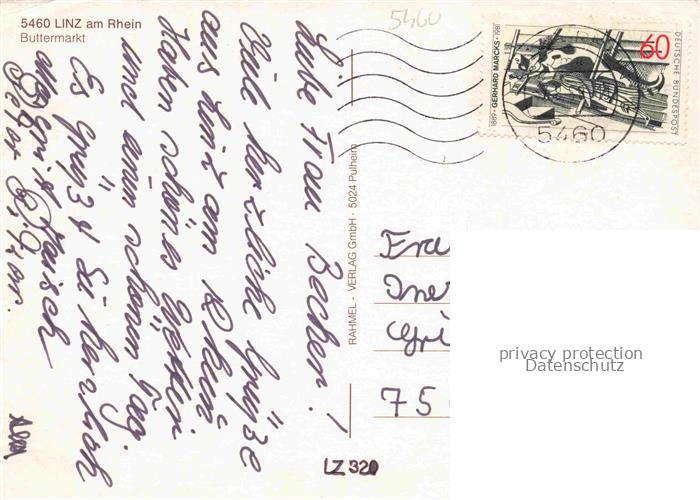 5460 LINZ am Rhein
Buttermarkt
5460
Liebe Frau Becker!
Viele herzliche Grüße
aus Linz am Rhein
Haben schönes Wetter
und einen schönen Tag.
Es grüßt Sie herzlich
RAHMEL - VERLAG GmbH · 5024 Pulheim
1889 · GERHARD MARCKS · 1981
60
DEUTSCHE BUNDESPOST
5460
75
privacy protection
Datenschutz
LZ 320